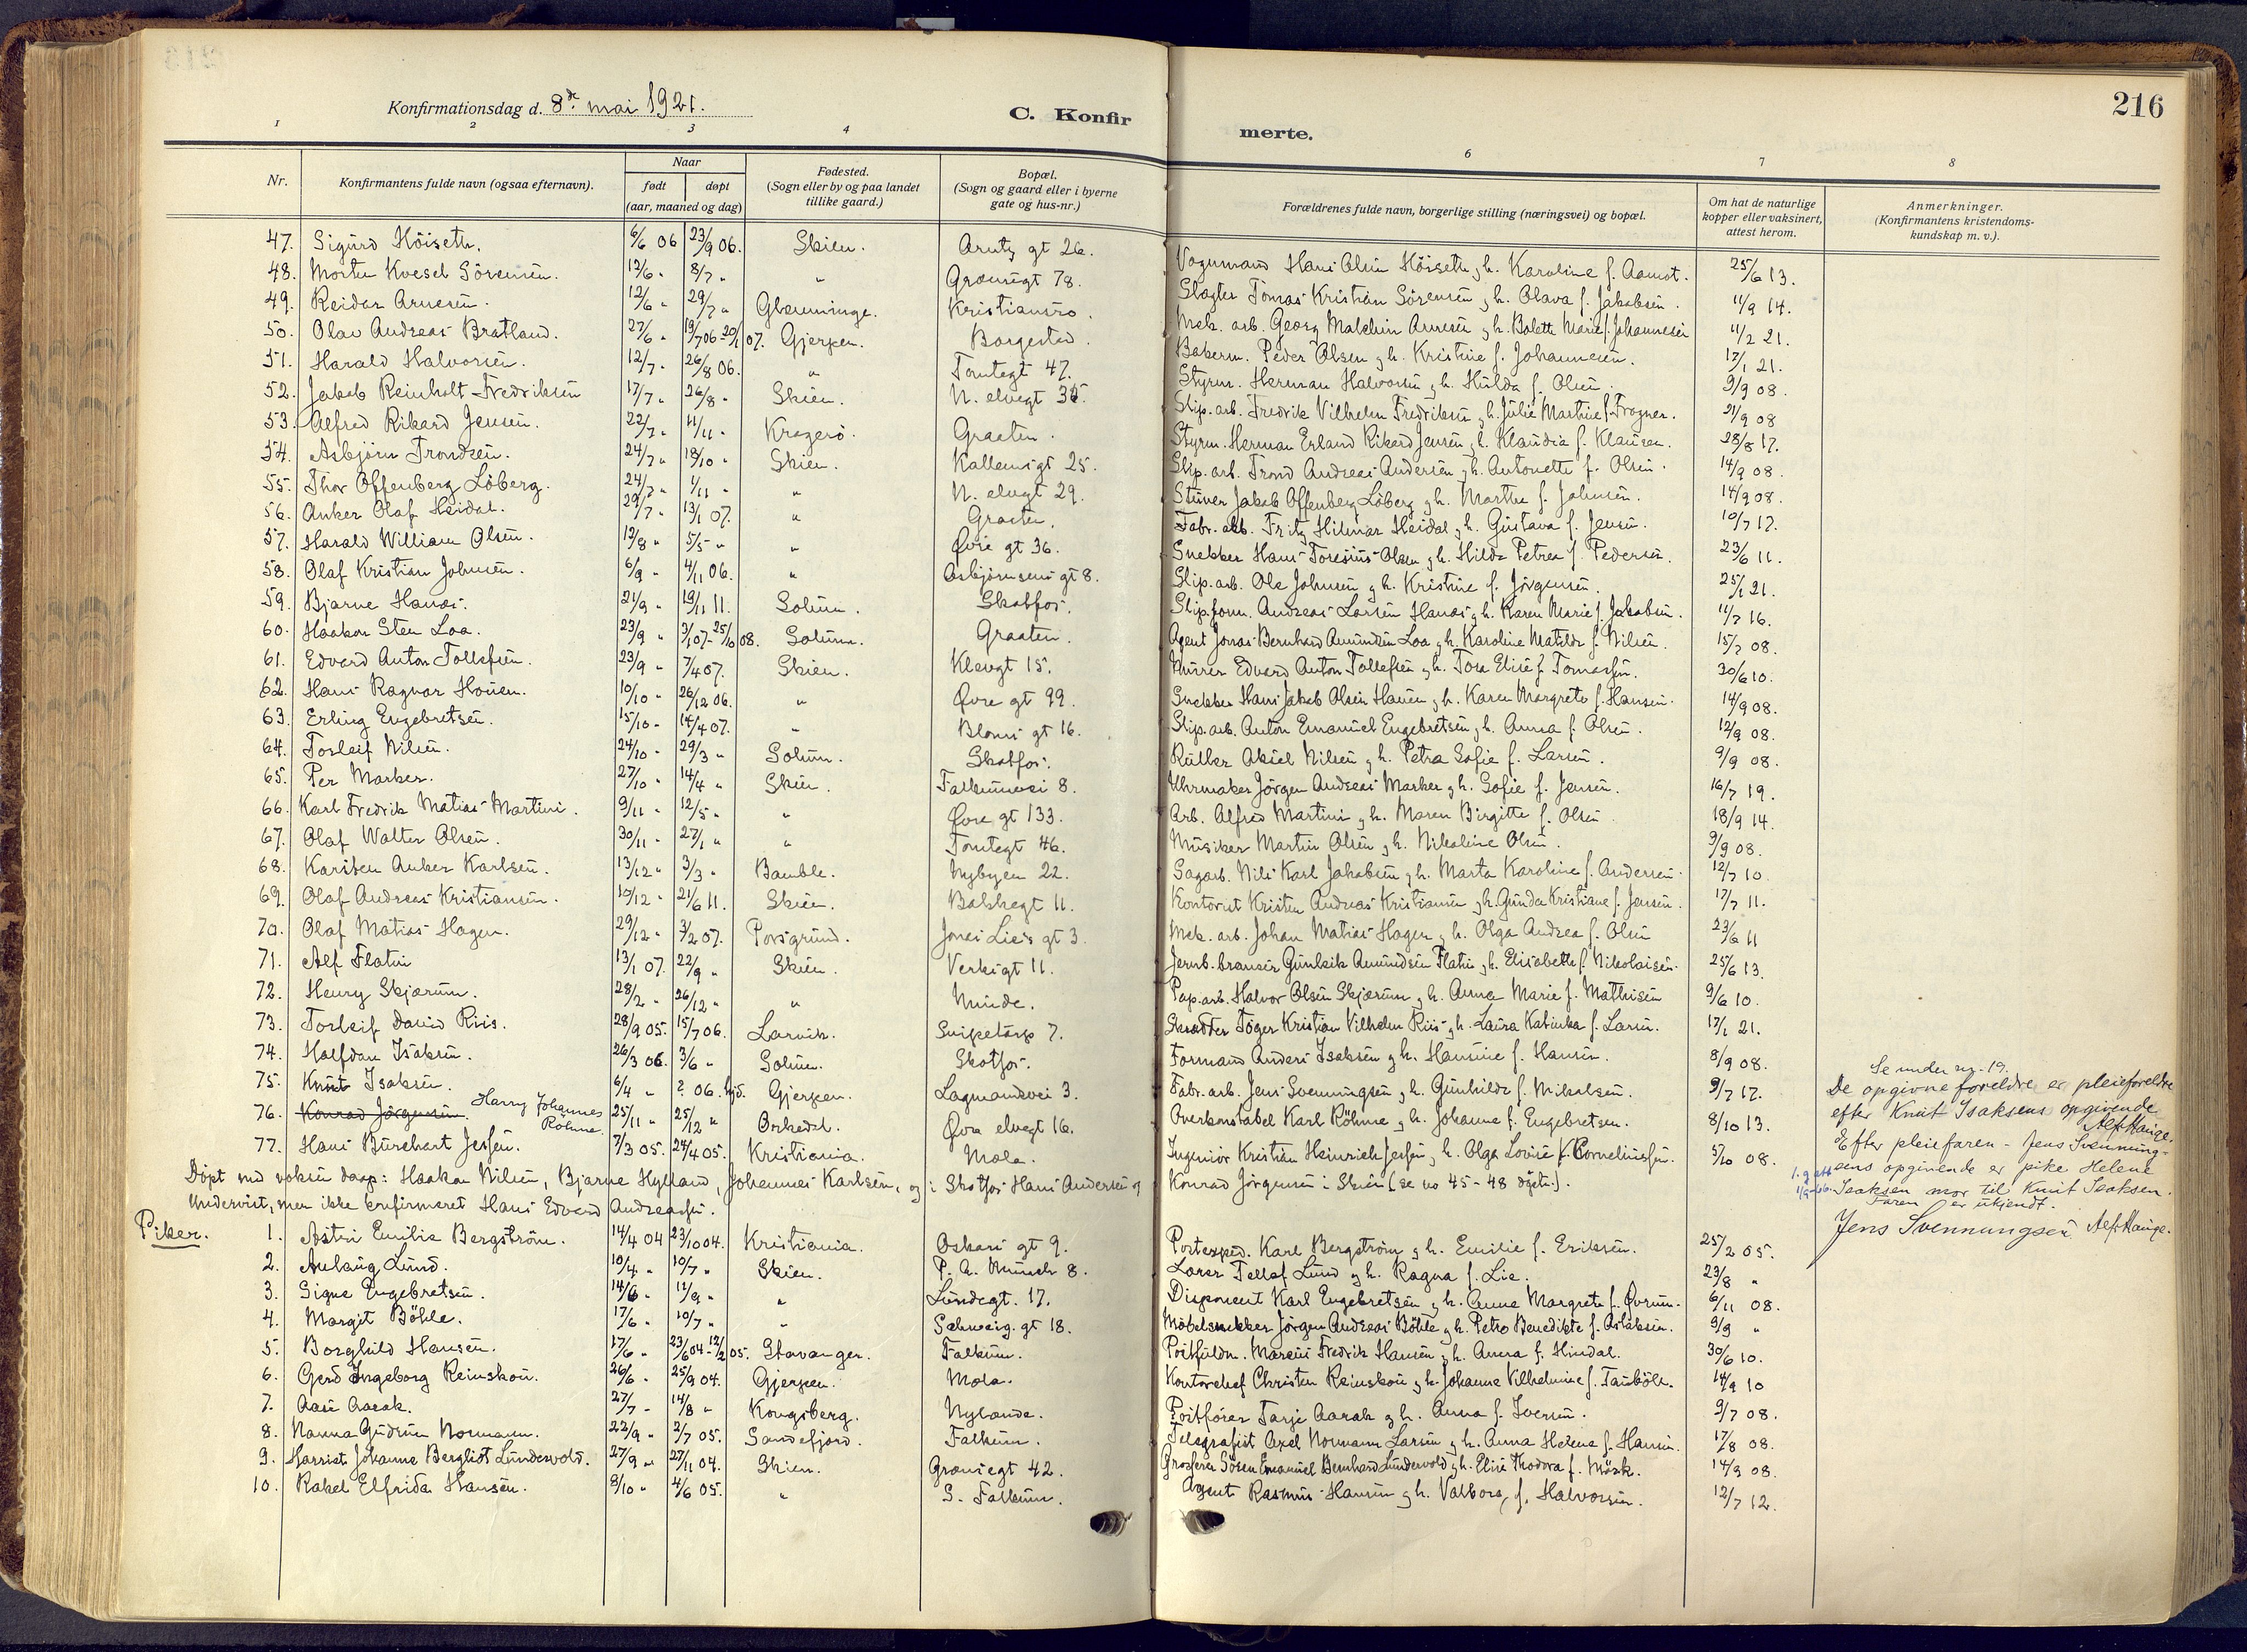 216
Konfirmationsdag d. 8de mai 1921.
C. Konfirmerte.
1 2 3 4 6 7 8
Nr. | Konfirmantens fulde navn (ogsaa efternavn). | Naar født | døpt (aar, maaned og dag) | Fødested. (Sogn eller by og paa landet tillike gaard.) | Bopæl. (Sogn og gaard eller i byerne gate og hus-nr.) | Forældrenes fulde navn, borgerlige stilling (næringsvei) og bopæl. | Om hat de naturlige kopper eller vaksinert, attest herom. | Anmerkninger. (Konfirmantens kristendomskundskap m. v.).
47. Sigurd Höiseth. 6/6 06 23/9 06. Skien. Arntz gt 26. Vognmand Hans Olsen Höiseth g h. Karoline f. Aamot. 25/6 13.
48. Morten Kvesel Sörensen. 12/6 " 8/7 " " Græsnigt 78. Slagter Tomas Kristian Sörensen g h. Olava f. Jakobsen. 11/9 14.
49. Reidar Arnesen. 12/6 " 29/7 " Glemminge. Kristiansro. Mek. arb. Georg Malehin Arnesen g h. Bolette Marie f. Johannesen 11/2 21.
50. Olav Andreas Bratland. 27/6 " 19/7 06-20/1 07. Gjerpen. Borgestad. Bakerm. Peder Olsen g h. Kristine f. Johannesen. 17/1 21.
51. Harald Halvorsen. 12/7 " 26/8 06. " Tomtegt 47. Styrm. Herman Halvorsen g h. Hulda f. Olsen. 9/9 08.
52. Jakob Reinholt Fredriksen 17/7 " 26/8 " Skien. N. elvegt 35. Slip. arb. Fredrik Vilhelm Fredriksen g h. Julie Martine f. Frogner. 21/9 08
53. Alfred Rikard Jensen. 22/7 " 11/11 " Kragerö. Graaten. Styrm. Herman Erland Rikard Jensen g h. Klaudia f. Klausen. 28/8 17.
54. Asbjörn Trondsen. 24/7 " 18/10 " Skien. Kallemsgt 25. Slip. arb. Trond Andreas Andersen g h. Antonette f. Olsen. 14/9 08.
55. Thor Offenberg Löberg. 24/7 " 1/11 " " N. elvegt 29. Stuver Jakob Offenberg Löberg g h. Marthe f. Johnsen. 14/9 08.
56. Anker Olaf Heidal. 29/7 " 13/1 07. " Graaten. Fabr. arb. Fritz Hilmar Heidal g h. Gustava f. Jensen. 10/7 17.
57. Harald William Olsen. 12/8 " 5/5 " " Øvre gt 36. Snekker Hans Toresius Olsen g h. Hilda Petrea f. Pedersen. 23/6 11.
58. Olaf Kristian Johnsen. 6/9 " 4/11 06. " Asbjörnsens gt 8. Slip. arb. Ole Johnsen g h. Kristine f. Jörgensen. 25/1 21.
59. Bjarne Hanæs. 21/9 " 19/11 11. Solum. Skotfos. Slip. form. Andreas Larsen Hanæs g h. Karen Marie f. Jakobsen. 11/7 16.
60. Haakon Sten Loa. 23/9 " 3/1 07-25/10 08. Solum. Graaten. Agent Jonas Bernhard Amundsen Loa g h. Karoline Matilde f. Nilsen. 15/7 08.
61. Edvard Anton Tollefsen. 23/9 " 7/4 07. Skien. Klevgt 15. Murer Edvard Anton Tollefsen g h. Tora Elise f. Tomassen. 30/6 10.
62. Hans Ragnar Hauen. 10/10 " 26/12 06. " Øvre gt 99. Snekker Hans Jakob Olsen Hauen g h. Karen Margrete f. Hansen. 14/9 08.
63. Erling Engebretsen. 15/10 " 14/4 07. " Bloms gt 16. Slip. arb. Anton Emanuel Engebretsen g h. Anna f. Olsen. 12/9 08.
64. Torleif Nilsen. 24/10 " 29/3 " Solum. Skotfos. Ruller Aksel Nilsen g h. Petra Sofie f. Larsen. 9/9 08.
65. Per Marker. 27/10 " 14/4 " Skien. Falkumvei 8. Uhrmaker Jörgen Andreas Marker g h. Sofie f. Jensen. 16/7 19.
66. Karl Fredrik Matias Martini. 9/11 " 12/5 " " Øvre gt 133. Arb. Alfred Martini g h. Maren Birgitte f. Olsen. 18/9 14.
67. Olaf Walter Olsen. 30/11 " 27/1 " " Tomtegt 46. Musiker Martin Olsen g h. Nikoline Olsen. 9/9 08.
68. Karsten Anker Karlsen. 13/12 " 3/3 " Bamble. Nybyen 22. Sagarb. Nils Karl Jakobsen g h. Marta Karoline f. Andersen. 12/7 10.
69. Olaf Andreas Kristiansen. 19/12 " 21/6 11. Skien. Bakkegt 11. Kontorist Kristen Andreas Kristiansen g h. Gunda Kristiane f. Jensen. 17/7 11.
70. Olaf Matias Hagen. 29/12 " 3/2 07. Porsgrund. Jonas Lies gt 3. Mek. arb. Johan Matias Hagen g h. Olga Andrea f. Olsen 23/6 11
71. Alf Flatin 13/1 07. 22/9 " Skien. Verksgt 11. Jernb. bransör Gunleik Amundsen Flatin g h. Elisabeth f. Nikolaisen. 25/6 13.
72. Henry Skjærum. 28/2 " 26/12 " " Minde. Pap. arb. Halvor Olsen Skjærum g h. Anna Marie f. Mathisen 9/6 10.
73. Torleif David Riis. 28/9 05. 15/7 06. Larvik. Snipetorp 7. Skrædder Töger Kristian Vilhelm Riis g h. Laura Katinka f. Larsen. 17/1 21.
74. Halfdan Isaksen. 26/3 06. 3/6 " Solum. Skotfos. Formand Anders Isaksen g h. Hansine f. Hansen. 8/9 08.
75. Knut Isaksen. 6/4 " ? 06. hjd. Gjerpen. Lagmandsvei 3. Fabr. arb. Jens Svenningsen g h. Gunhilde f. Nikolsen. 9/7 17.
76. Konrad Jörgensen. Harry Johannes Röhme 25/11 " 25/12 " Orkedal. Øvre elvegt 16. Overkonstabel Karl Röhme g h. Johanne f. Engebretsen. 8/10 13.
77. Hans Burchart Jessen. 7/3 05. 24/4 05. Kristiania. Mæla. Ingeniör Kristian Heinrich Jessen g h. Olga Lovise f. Corneliussen. 5/10 08.
Döpt ved voksen daap: Haakon Nilsen, Bjarne Hylland, Johannes Karlsen, og i Skotfos Hans Andersen og Konrad Jörgensen i Skien (se no 45-48 døpte).
Undervist, men ikke konfirmeret Hans Edvard Andreassen.
Se under no. 19.
De opgivne foreldre er pleieforeldre
efter Knut Isaksens opgivende
Alf Hauge.
Efter pleiefaren - Jens Svenning-
sens opgivende er pike Helene
Isaksen mor til Knut Isaksen.
Faren er ukjendt.
Jens Svenningsen Alf Hauge.
Piker.
1. Astri Emilie Bergström. 14/4 04 23/10 04. Kristiania. Oskars gt 9. Postexped. Karl Bergström g h. Emilie f. Eriksen. 25/2 05.
2. Aslaug Lund. 10/4 " 10/7 " Skien. P. A. Munchs 8. Lærer Tellef Lund og h. Ragna f. Lie. 23/8 "
3. Signe Engebretsen. 14/6 " 11/9 " " Lundegt. 17. Disponent Karl Engebretsen g h. Anne Margrete f. Øvrum. 6/11 08.
4. Margit Böhle. 17/6 " 10/7 " " Schweig. gt 18. Möbelsnekker Jörgen Andreas Böhle g h. Petra Benedikte f. Aslaksen. 9/9 "
5. Borghild Hansen. 17/6 " 23/6 04-12/2 05. Stavanger. Falkum. Postfuldm. Marius Fredrik Hansen g h. Anna f. Hindal. 30/6 10.
6. Gerd Ingeborg Reinskou. 26/6 " 25/9 04. Gjerpen. Mæla. Kontorchef Christen Reinskou g h. Johanne Vilhelmine f. Tauböll. 14/9 10
7. Aase Aarak. 27/7 " 14/8 " Kongsberg. Nylænde. Postfører Tarje Aarak g h. Anna f. Iversen. 9/7 08.
8. Nanna Gudrun Normann. 22/9 " 2/7 05. Sandefjord. Falkum. Telegrafist Axel Normann Larsen g h. Anna Helene f. Hansen. 17/8 08.
9. Harriet Johanne Bergliot Lundervold. 27/9 " 27/11 04. Skien. Grænsegt 42. Grosserer Sören Emanuel Bernhard Lundervold g h. Elise Thodora f. Mörk. 14/9 08.
10. Rakel Elfrida Hansen. 8/10 " 4/6 05. " S. Falkum. Agent Rasmus Hansen g h. Valborg f. Halvorsen. 12/7 12.